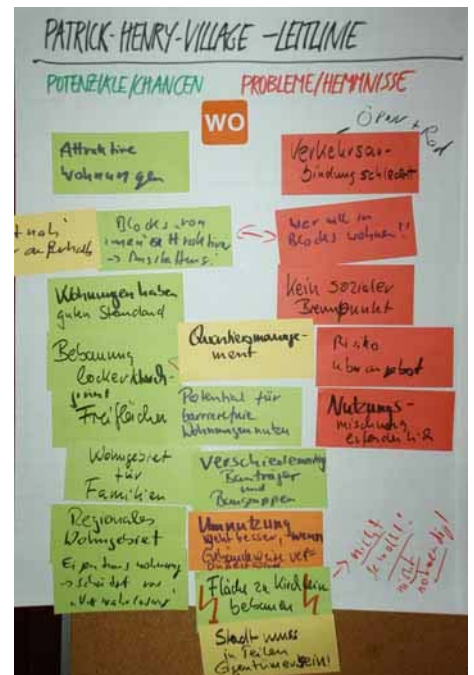 PATRICK-HENRY-VILLAGE - LEITLINIE
POTENZIALE/CHANCEN
PROBLEME/HEMMNISSE
WO
ÖPNV + Rad
Attraktive
Wohnungen
Verkehrsan-
bindung schlecht
Blocks von
innen attraktiv
→ Ausstattung!
Wer will in
Blocks wohnen!!
Wohnungen haben
guten Standard
Kein sozialer
Brennpunkt
Quartiersmanage-
ment
Risiko
Überangebot
Bebauung
locker
Freiflächen
Potential für
barrierefreie
Wohnungen nutzen
Nutzungs-
mischung
erforderlich
Wohngebiet
für
Familien
Verschiedenartig
Bauträger
und
Baugruppen
Regionales
Wohngebiet
Eigentumswohnung
→ schützt vor
"Verwahrlosung"
Umnutzung
nicht besser, wenn
Fläche zu Kirchheim
bebauen
→ nicht
nicht
notwendig!
Stadt muss
in Teilen
Eigentümer sein!